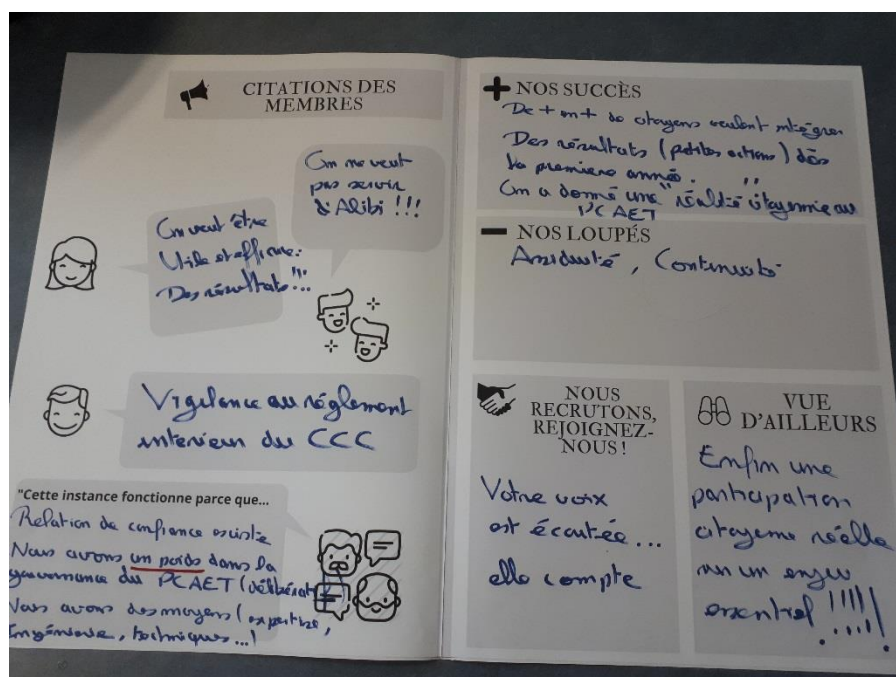 CITATIONS DES
MEMBRES
On ne veut
pas servir
d'Alibi !!!
On veut être
Utile et efficace.
Des résultats !!!
Vigilance au réglement
interieur du CCC
"Cette instance fonctionne parce que...
Relation de confiance existe
Nous avons un poids dans la
gouvernance du PCAET (
Nous avons des moyens (expertise,
Ingénierie, techniques...)
NOS SUCCÈS
De + en + de citoyens veulent intégrer
Des résultats (petites actions) dès
la première année.
On a donné une "réalité" citoyenne au
PCAET
NOS LOUPÉS
Assiduité, Continuité
NOUS
RECRUTONS,
REJOIGNEZ-
NOUS !
Votre voix
est écoutée...
elle compte
VUE
D'AILLEURS
Enfin une
participation
citoyenne réelle
sur un enjeu
essentiel !!!!!